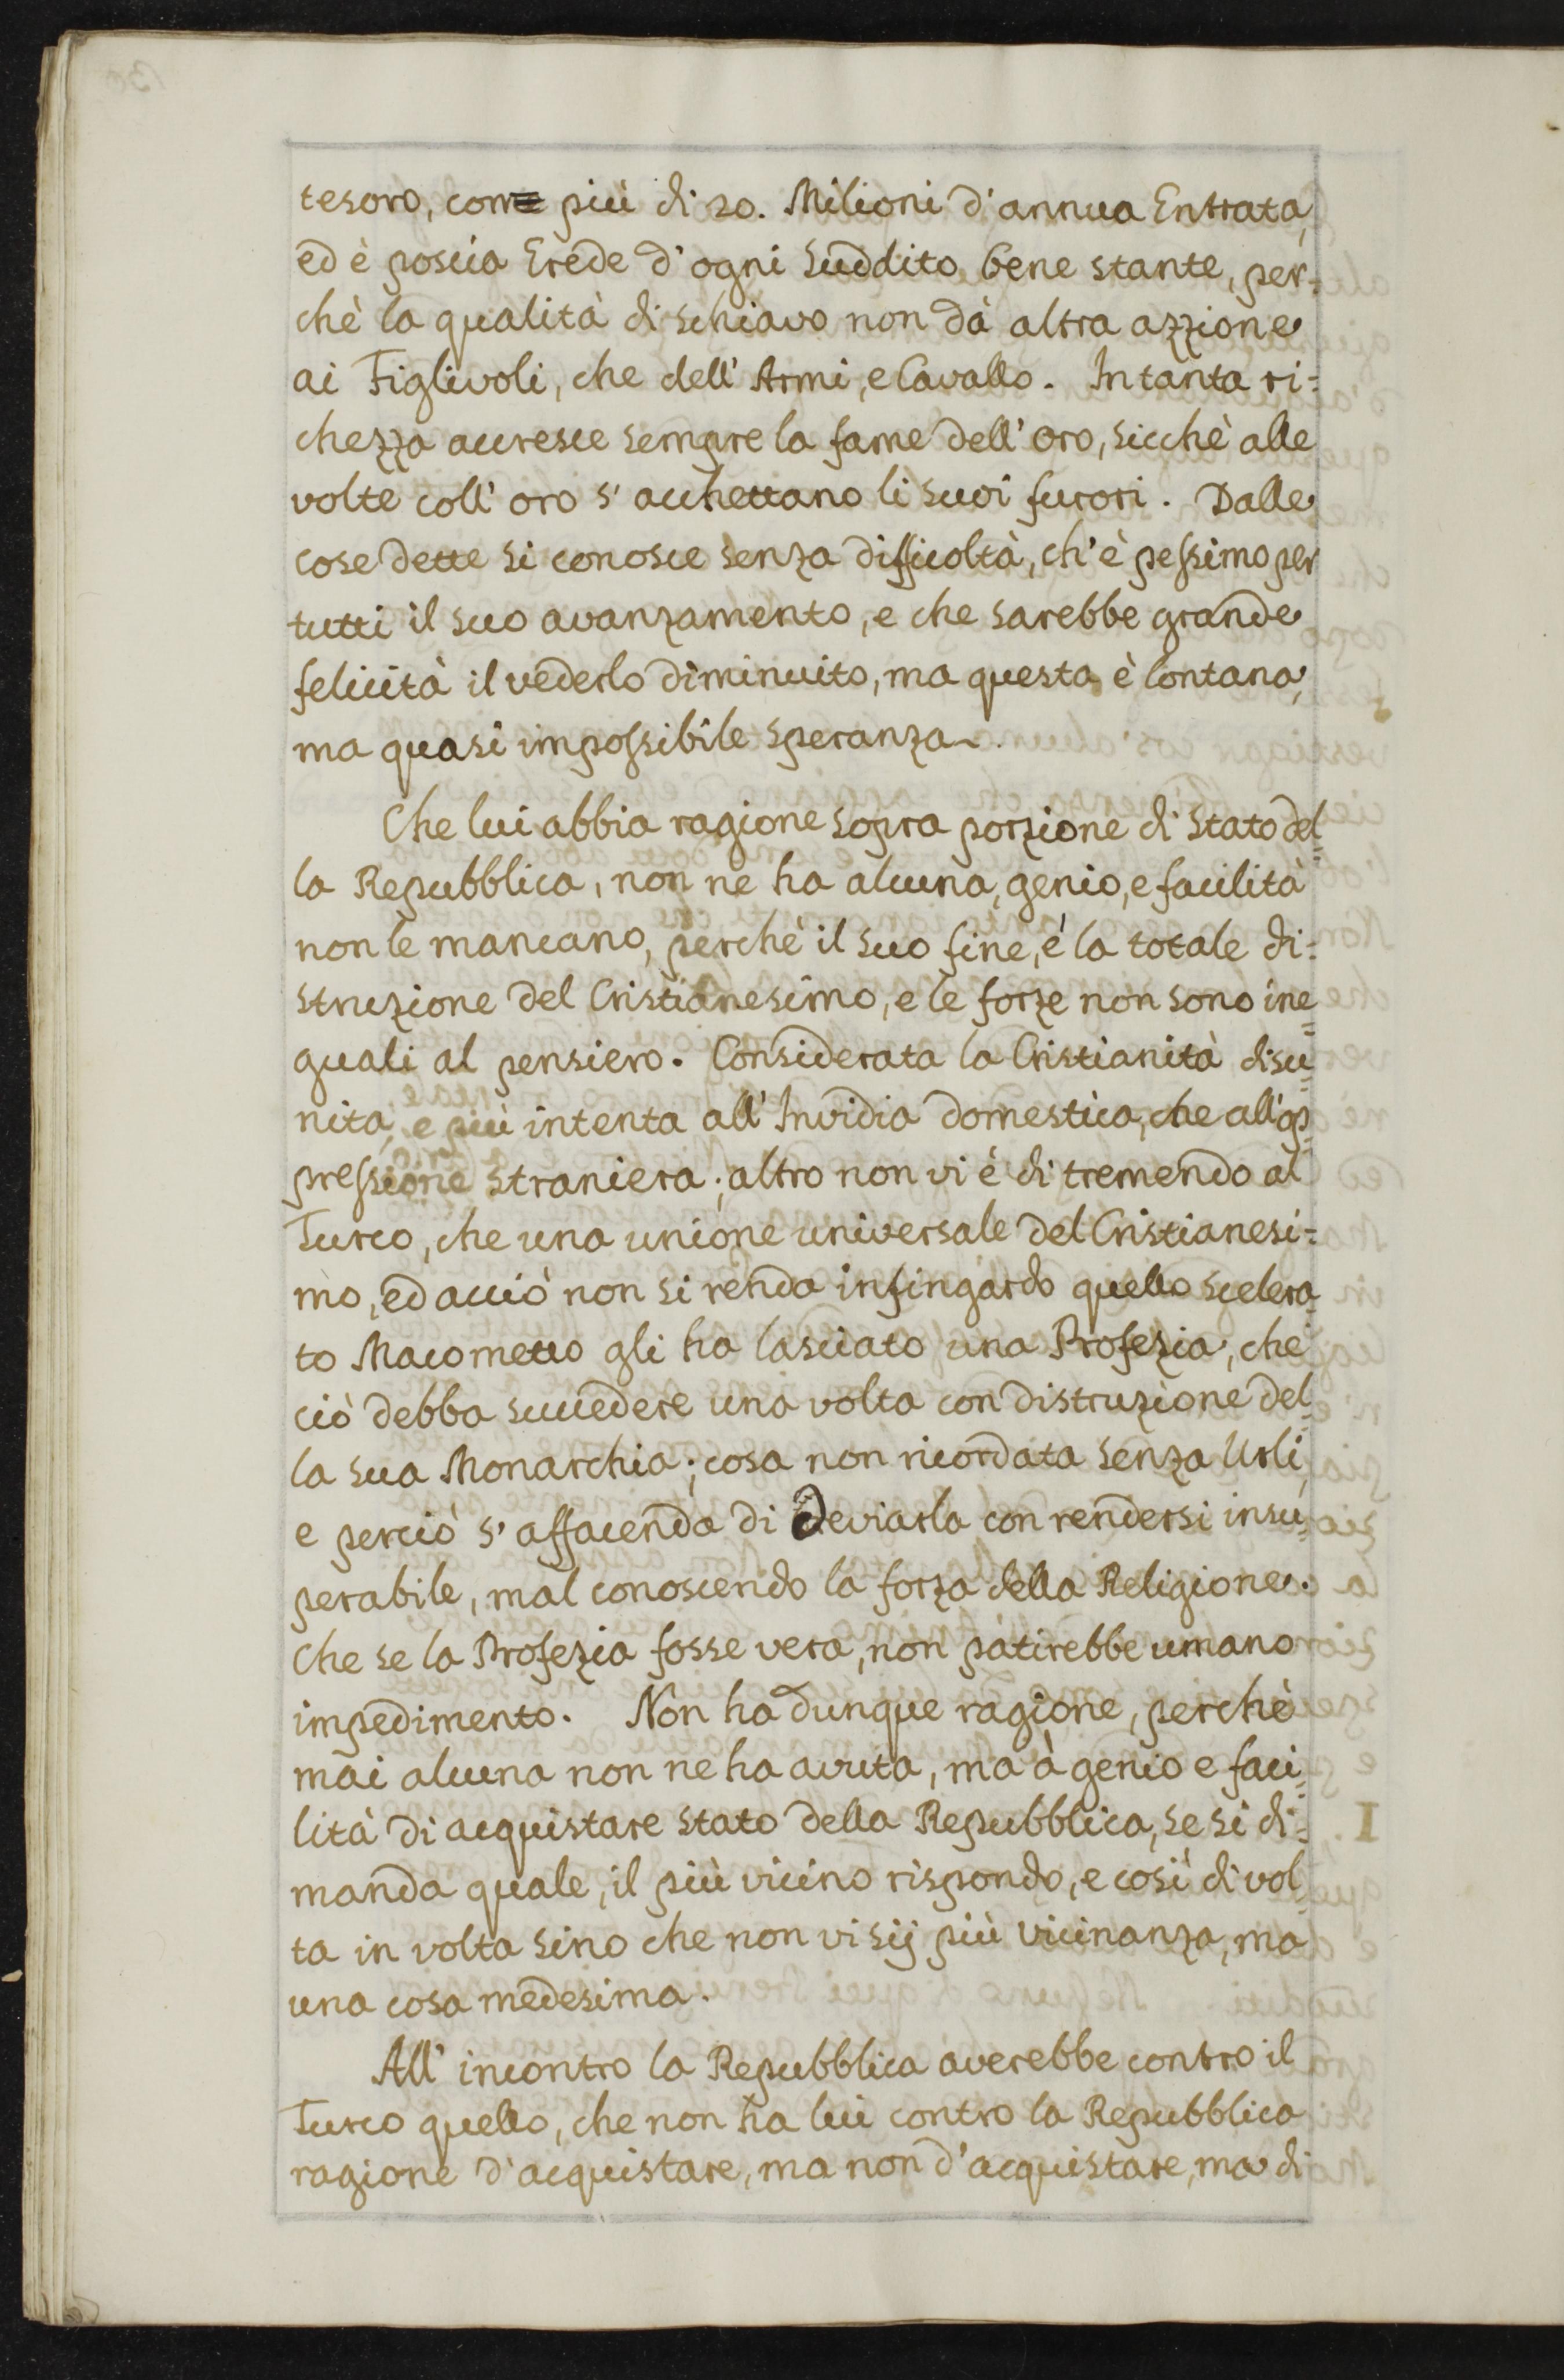 tesoro, con più di 20. Milioni d'annua Entrata,
ed è poscia Erede d'ogni Suddito bene stante, per=
chè la qualità di schiavo non dà altra azzione
ai Figlivoli, che dell'Armi, e Cavallo. In tanta ri=
chezza accresce sempre la fame dell'oro, sicchè alle
volte coll'oro s'acchettano li suoi furori. Dalle
cose dette si conosce senza difficoltà, ch'è pessimo per
tutti il suo avanzamento, e che sarebbe grande
felicità il vederlo diminuito, ma questa è lontana,
ma quasi impossibile speranza.
Che lui abbia ragione sopra porzione di Stato del=
la Repubblica, non ne ha alcuna, genio, e facilità
non le mancano, perchè il suo fine, è la totale di=
struzione del Cristianesimo, e le forze non sono ine=
guali al pensiero. Considerata la Cristianità disu=
nita, e più intenta all'Invidia domestica, che all'op=
pressione straniera; altro non vi è di tremendo al
Turco, che una unione universale del Cristianesi=
mo, ed acciò non si renda infingardo quello scelera=
to Macometto gli ha lasciato una Profezia, che
ciò debba succedere una volta con distruzione del=
la sua Monarchia; cosa non ricordata senza Urli,
e perciò s'affacenda di deviarla con rendersi insu=
perabile, mal conoscendo la forza della Religione.
Che se la Profezia fosse vera, non patirebbe umano
impedimento. Non ha dunque ragione, perchè
mai alcuna non ne ha avuta, ma à genio e faci=
lità di acquistare stato della Repubblica, se si di=
manda quale, il più vicino rispondo, e così di vol=
ta in volta sino che non vi sij più vicinanza, ma
una cosa medesima.
All'incontro la Repubblica averebbe contro il
Turco quello, che non ha lui contro la Repubblica
ragione d'acquistare, ma non d'acquistare, ma di